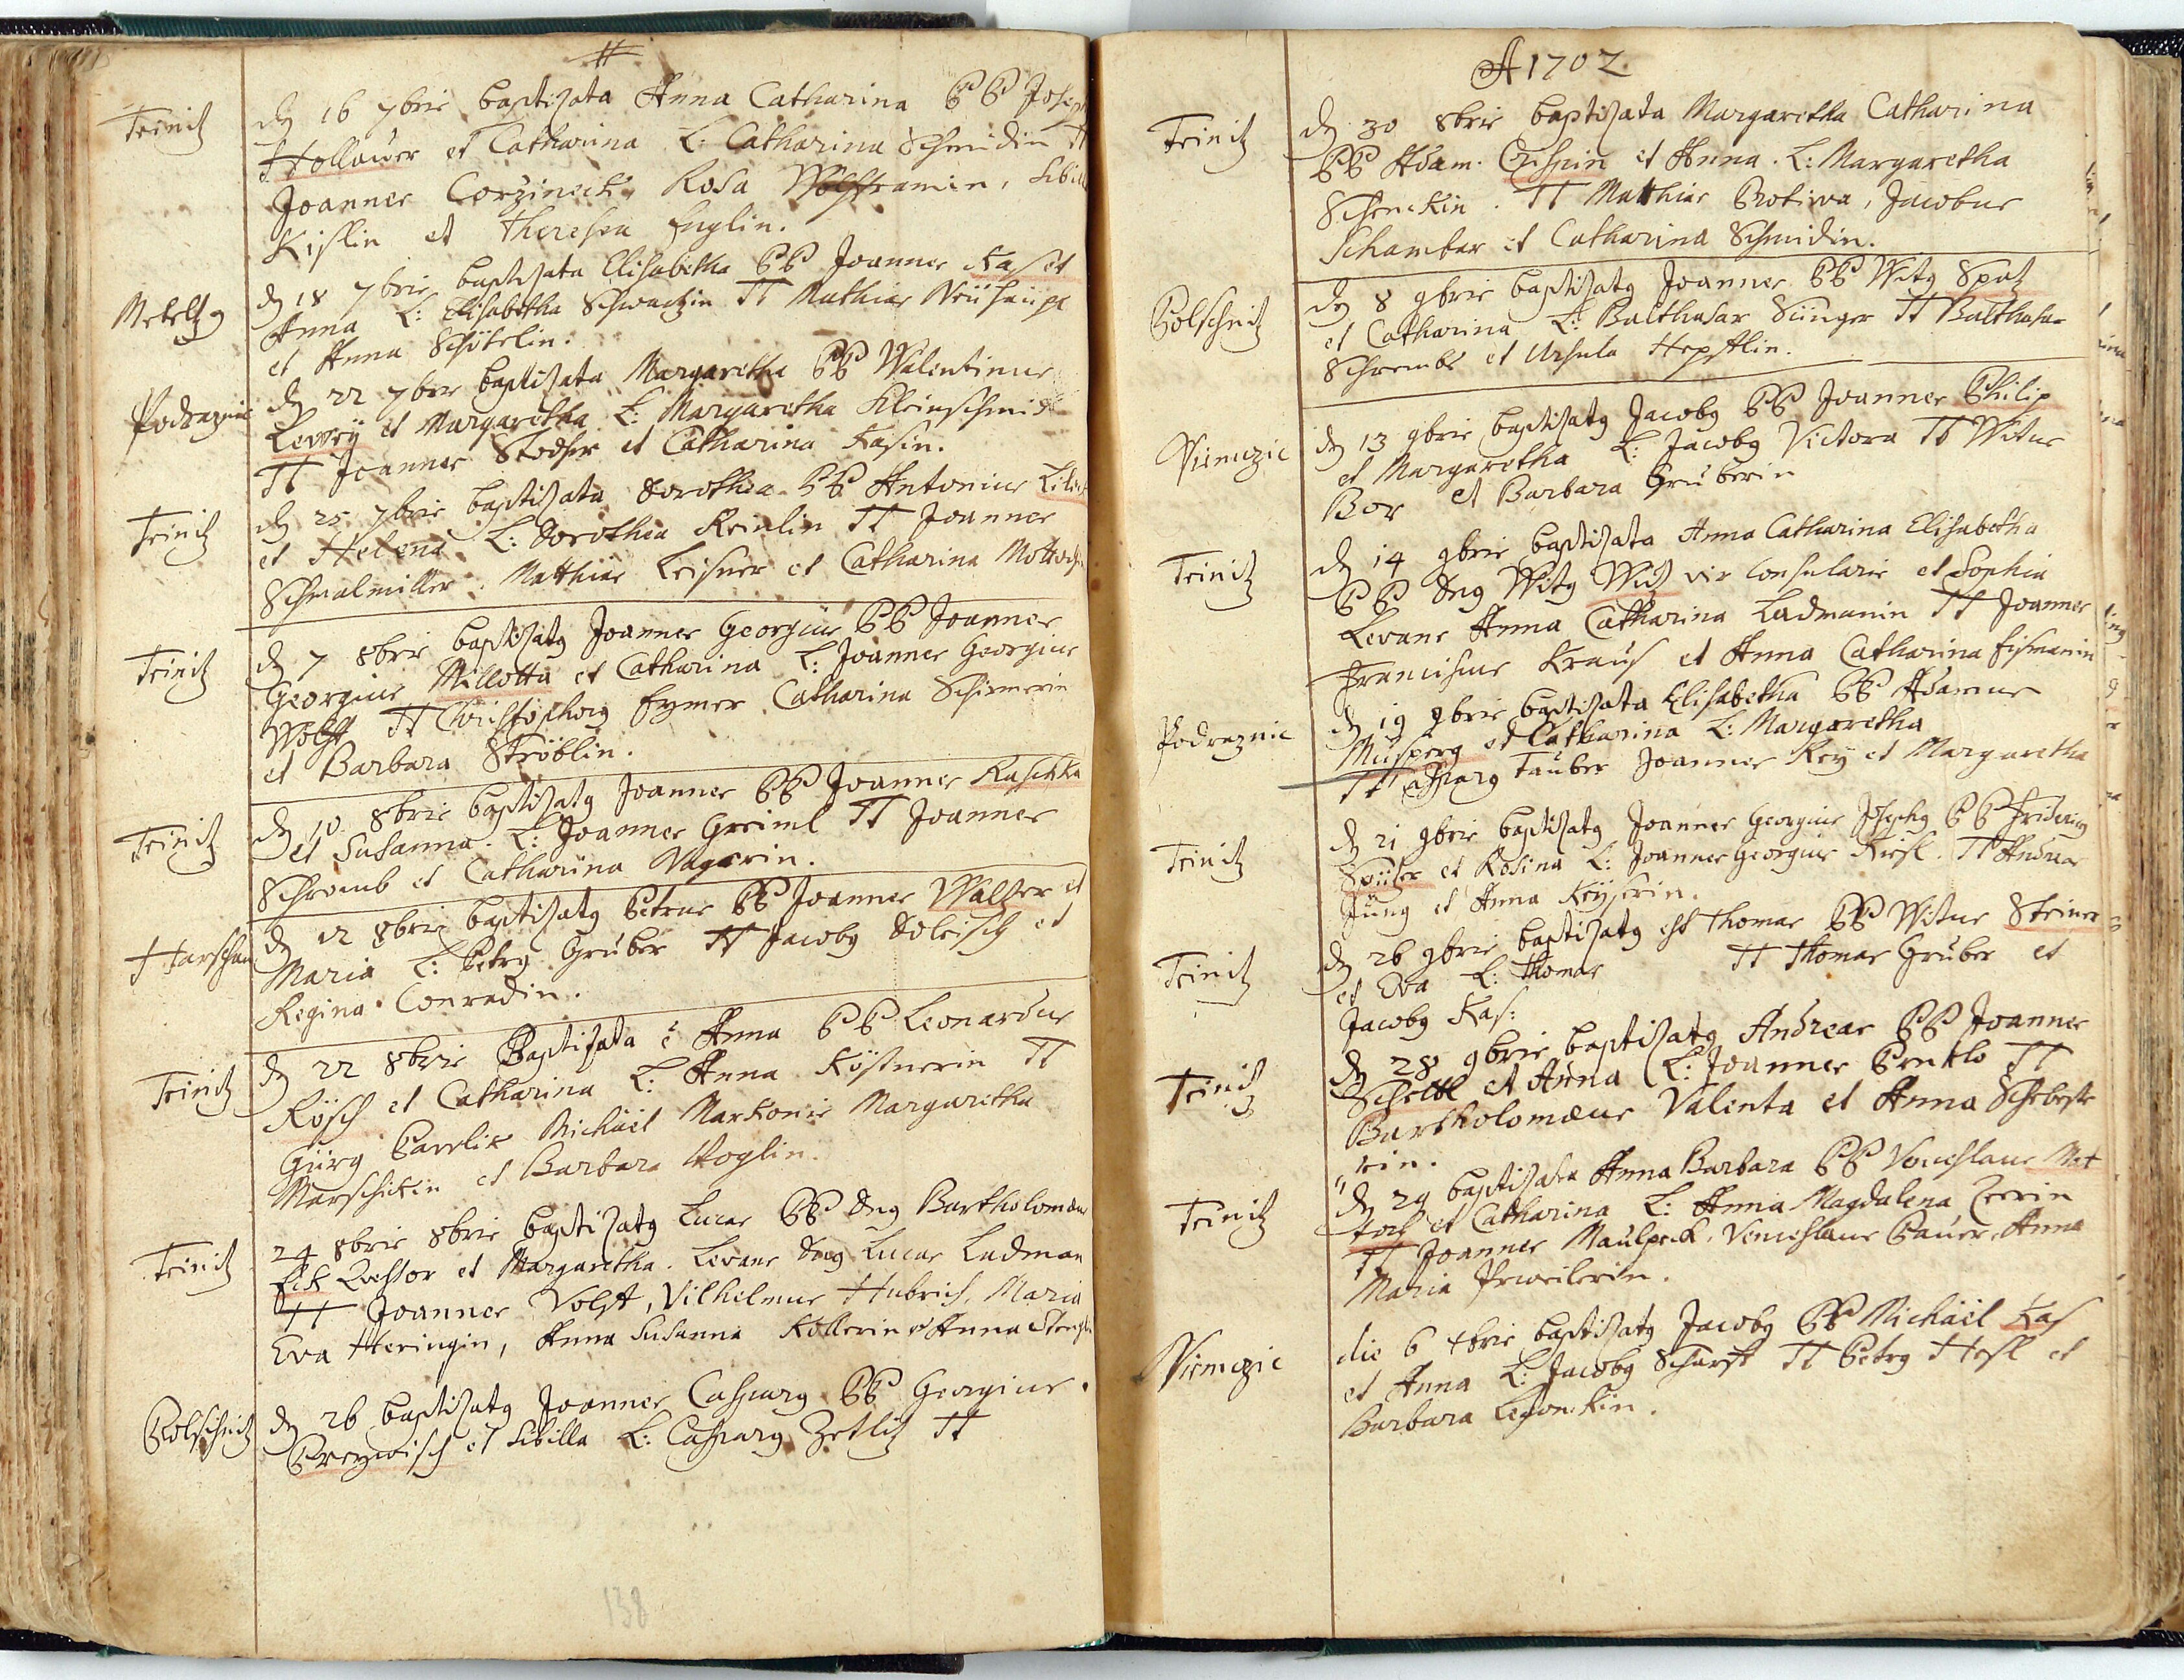 Teinitz
d 16 7bris baptizata Anna Catharina PP Joseph
Hollauer et Catharina L: Catharina Schmidin TT
Joannes Corzineck, Rosa Wolfframin, Sibilla
Kislin et Theresia Englin.
Meteltzg
d 18 7bris baptizata Elisabetha PP Joannes Kas et
Anna L: Elisabetha Schwartzin TT Mathias
et Anna
Podraznic
d 22 7bris baptizata Margaretha PP Valentinus
Lewrÿ et Margaretha L: Margaretha Kleinschmid
TT Joannes et Catharina Kasin.
Teinitz
d 25 7bris baptizata Dorothea PP Antonius
et Helena L: Dorothea Reinlin TT Joannes
Schmalmiller, Matthias Leisner et Catharina
Teinitz
d 7 8bris baptizatg Joannes Georgius PP Joannes
Georgius Millotta et Catharina L: Joannes Georgius
Wolff TT Christophorg Eymer Catharina Schirmerin
et Barbara Ströblin.
Teinitz
d 10 8bris baptizatg Joannes PP Joannes Raschka
et Susanna. L: Joannes Greiml TT Joannes
Schromb et Catharina Vagerin.
Harschau
d 12 8bris baptizatg Petrus PP Joannes Walter et
Maria L: Petrg Gruber TT Jacobg Doleisch et
Regina Conradin.
Teinitz
d 22 8bris Baptizata ē Anna PP Leonardus
Rösch et Catharina L: Anna Köstnerin TT
Gürg Pavelik Michäel Markonis Margaretha
Marschikin et Barbara Voglin.
Teinitz
24 8bris 8bris baptizatg Lucas PP Dng Bartholomæus
Fck Quæstor et Margaretha. Levans Dng Lucas Ladman
TT Joannes Volft, Vilhelmus Hubrich, Maria
Eva Heringin, Anna Susanna Kollerin et Anna
Polschitz
d 26 baptizatg Joannes Casparg PP Georgius
Preywisch et Sibilla L: Casparg Zetlitz TT
138
A 1702.
Teinitz
d 30 8bris baptizata Margaretha Catharina
PP Adam Crispin et Anna. L: Margaretha
Schenckin. TT Matthias Protiwa, Jacobus
Schambar et Catharina Schmidin.
Polschitz
d 8 9bris baptizatg Joannes PP Witg Spatz
et Catharina L: Balthasar Sünger TT Balthasar
Schrembs et Ursula Hepftlin.
Niemczic
d 13 9bris baptizatg Jacobg PP Joannes Philip
et Margaretha L: Jacobg Victora TT Witus
Bor et Barbara Gruberin
Teinitz
d 14 9bris baptizata Anna Catharina Elisabetha
PP Dng Witg Witz vir Consularis et Sophia
Levans Anna Catharina Ladmanin TT Joannes
Franciscus Kraus et Anna Catharina Eismanin
Podraznic
d 19 9bris baptizata Elisabetha PP Adamus
Musperg et Catharina L: Margaretha
TT Casparg Tauber Joannes Rey et Margaretha
Teinitz
d 21 9bris baptizatg Joannes Georgius Josephg PP Friderig
Spitzer et Rosina L: Joannes Georgius Kiesl. TT Andreas
Jung et Anna Keyserin.
Teinitz
d 26 9bris baptizatg est Thomas PP Witus Steiner
et Eva L: Thomas TT Thomas Gruber et
Jacobg Kas:
Teinitz
d 28 9bris baptizatg Andreas PP Joannes
et Anna L: Joannes TT
Bartholomæus Valenta et Anna
rin.
Teinitz
d 29 baptizata Anna Barbara PP Venceslaus Mat
et Catharina L: Anna Magdalena
TT Joannes Maulpeck, Venceslaus Pauer, Anna
Maria
Niemczic
die 6 xbris baptizatg Jacobg PP Michäel Kas
et Anna L: Jacobg Scharft TT Petrg Hesl et
Barbara